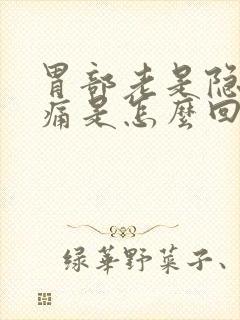 胃部老是隐
痛是怎麽回
绿華野菜子、